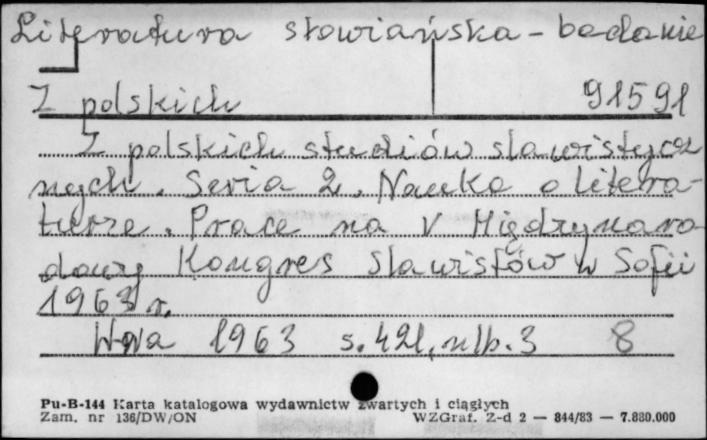 Literatura słowiańska - badanie
Z polskich 91591
Z polskich studiów slawistycz
nych. Seria 2. Nauka o litera-
turze. Prace na V Międzynaro-
dowy Kongres Slawistów w Sofii
1963 r.
W-wa 1963 s. 421, nlb. 3 8
Pu-B-144 Karta katalogowa wydawnictw zwartych i ciągłych
Zam. nr 136/DW/ON WZGraf. Z-d 2 — 844/83 — 7.880.000